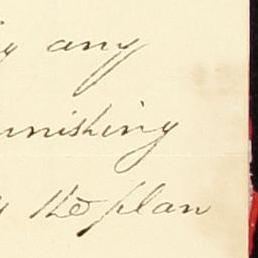 y any
nishing
y the plan